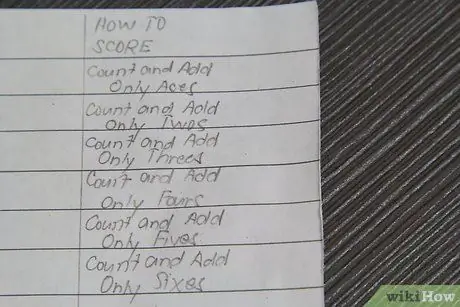 HOW TO
SCORE
Count and Add
Only Aces
Count and Add
Only Twos
Count and Add
Only Threes
Count and Add
Only Fours
Count and Add
Only Fives
Count and Add
Only Sixes
wikiHow